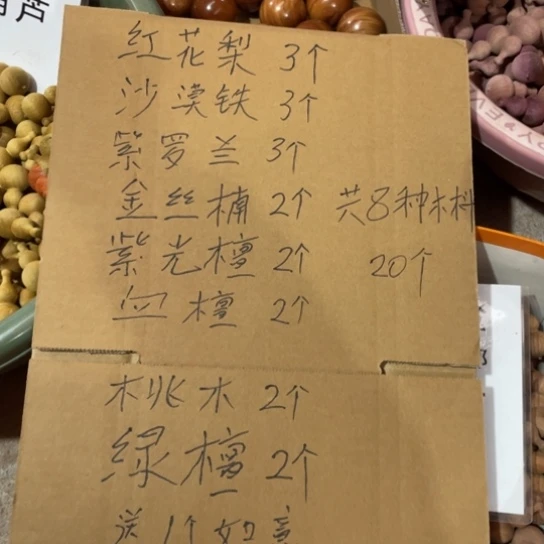 芦
红花梨 3个
沙漠铁 3个
紫罗兰 3个
金丝楠 2个 共8种木料
紫光檀 2个 20个
血檀 2个
桃木 2个
绿檀 2个
送1个如意